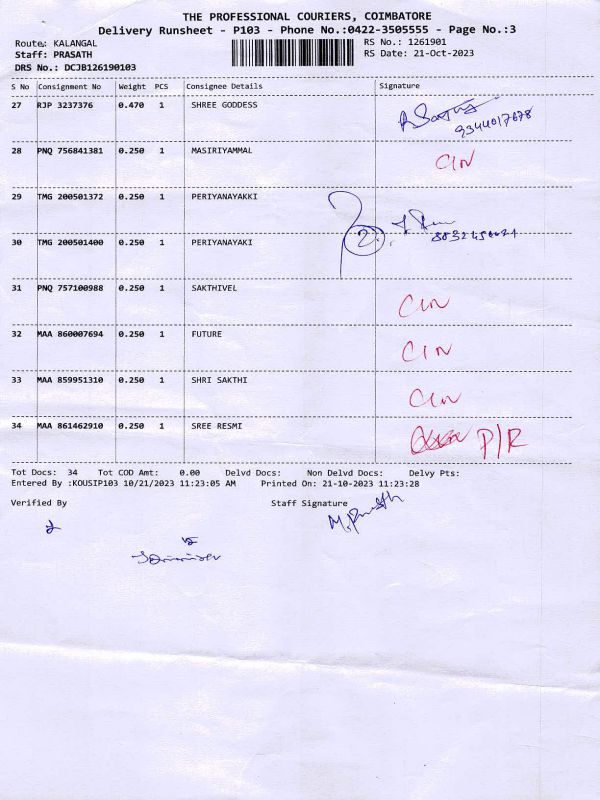 THE PROFESSIONAL COURIERS, COIMBATORE
Delivery Runsheet - P103 - Phone No.:0422-3505555 - Page No.:3
Route: KALANGAL RS No.: 1261901
Staff: PRASATH RS Date: 21-Oct-2023
DRS No.: DCJB126190103
S No Consignment No Weight PCS Consignee Details Signature
27 RJP 3237376 0.470 1 SHREE GODDESS
9344017678
28 PNQ 756841381 0.250 1 MASIRIYAMMAL
CIN
29 TMG 200501372 0.250 1 PERIYANAYAKKI
2
30 TMG 200501400 0.250 1 PERIYANAYAKI
31 PNQ 757100988 0.250 1 SAKTHIVEL
CIN
32 MAA 860007694 0.250 1 FUTURE
CIN
33 MAA 859951310 0.250 1 SHRI SAKTHI
CIN
34 MAA 861462910 0.250 1 SREE RESMI
P/R
Tot Docs: 34 Tot COD Amt: 0.00 Delvd Docs: Non Delvd Docs: Delvy Pts:
Entered By :KOUSIP103 10/21/2023 11:23:05 AM Printed On: 21-10-2023 11:23:28
Verified By Staff Signature